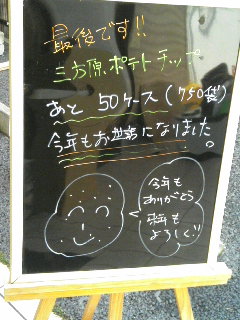 最後です!!
三方原ポテトチップ
あと 50ケース(750袋)
今年もお世話になりました。
今年も
ありがとう
来年も
よろしく!!